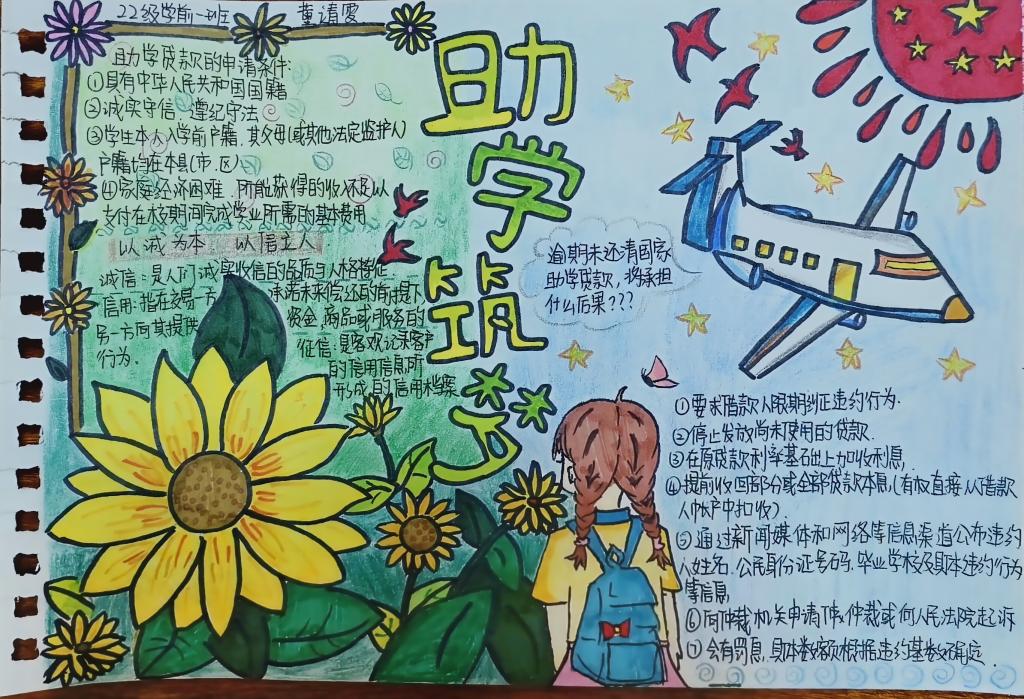 22级学前一班 董清雯
助学贷款的申请条件:
①具有中华人民共和国国籍
②诚实守信,遵纪守法
③学生本人入学前户籍、其父母(或其他法定监护人)
户籍均在本县(市、区)
④家庭经济困难,所能获得的收入不足以
支付在校期间完成学业所需的基本费用
以诚为本 以信立人
诚信:是人们诚实守信的品质与人格特征
信用:指在交易一方承诺未来偿还的前提下,
另一方向其提供资金,商品或服务的
行为.
征信:是客观记录客户
的信用信息所
形成的信用档案
助学筑梦
逾期未还清国家
助学贷款,将承担
什么后果???
①要求借款人限期纠正违约行为.
②停止发放尚未使用的贷款.
③在原贷款利率基础上加收利息,
④提前收回部分或全部贷款本息,(有权直接从借款
人帐户中扣收).
⑤通过新闻媒体和网络等信息渠道公布违约
人姓名.公民身份证号码.毕业学校及具体违约行为
等信息
⑥向仲裁机关申请仲裁或向人民法院起诉
⑦会有罚息,具体数额根据违约基数确定.